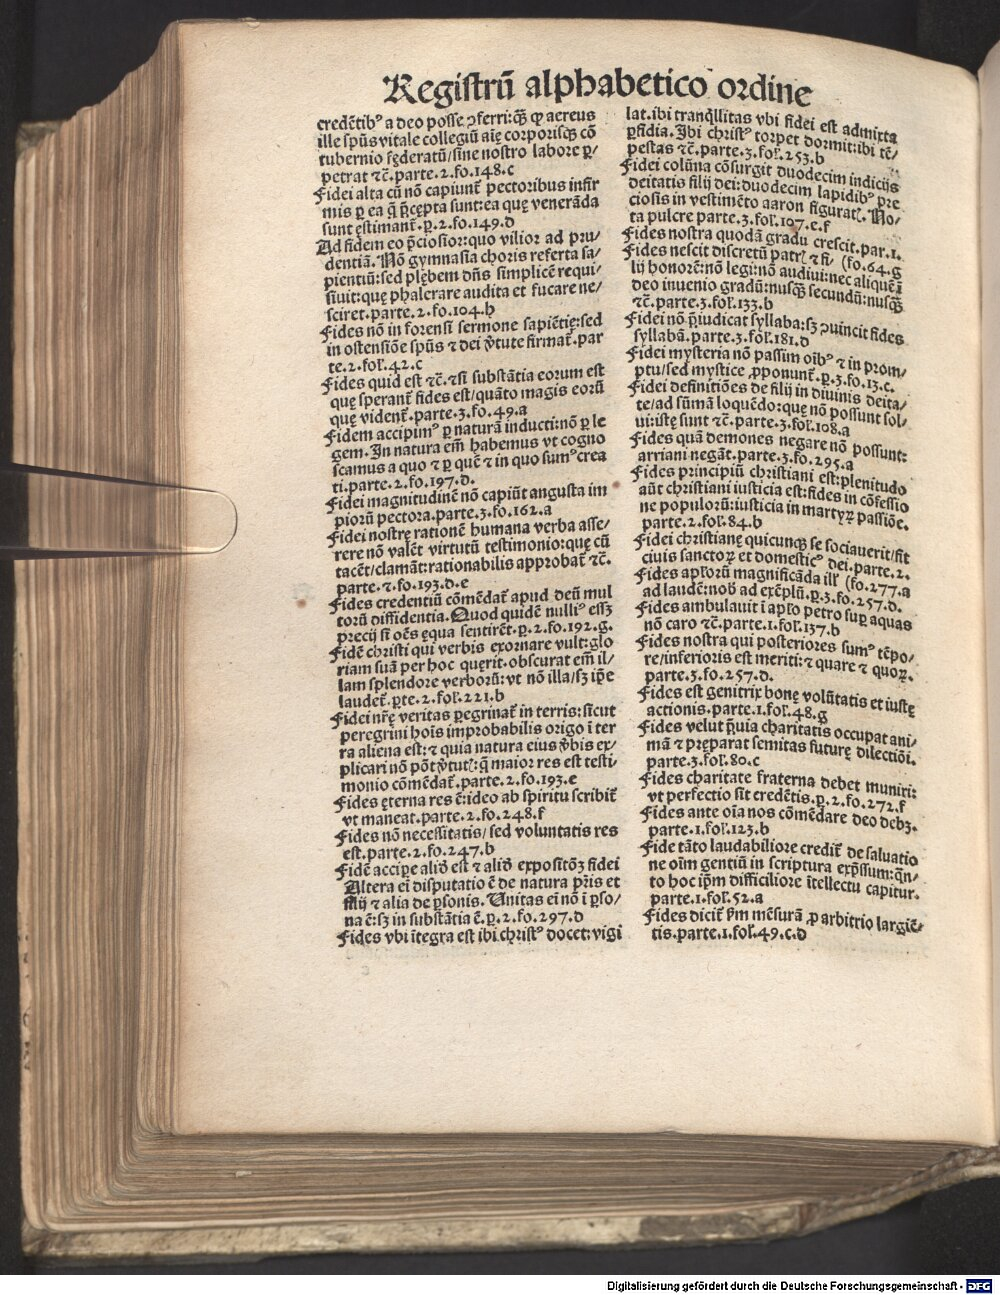 Registrũ alphabetico ordine
credẽtibꝰ a deo posse ꝯferri: qͥꝫ qꝫ aereus
ille spũs vitale collegiũ aĩe corporisqꝫ cõ
tubernio fęderatũ/sine nostro labore ꝑ-
petrat ⁊c̃. parte.2.fo.148.c
Fidei alta cũ nõ capiunt᷑ pectoribus infir
mis ꝑ ea q̃ p̃cępta sunt: ea quę venerãda
sunt ęstimant᷑.ꝑ.2.fo.149.d
Ad fidem eo p̃ciosior: quo vilior ad pru/
dentiã. Nõ gymnasia choris referta sa/
pientiũ: sed plębem dñs simplicẽ requi/
siuit: quę phalerare audita et fucare ne/
sciret.parte.2.fo.104.h
Fides nõ in forensi sermone sapiẽtię: sed
in ostensiõe spũs ⁊ dei ṽtute firmat᷑.par
te.2.fol̃.42.c
Fides quid est ⁊c̃. ⁊ si substãtia eorum est
quę sperant᷑ fides est/quãto magis eorũ
quę vident᷑.parte.3.fo.49.a
Fidem accipimꝰ ꝑ naturã inducti: nõ ꝑ le
gem. In natura em̃ habemus vt cogno
scamus a quo ⁊ ꝑ quẽ ⁊ in quo sumꝰ crea
ti.parte.2.fo.197.d.
Fidei magnitudinẽ nõ capiũt angusta im
piorũ pectora.parte.3.fo.162.a
Fidei nostrę rationẽ humana verba asse/
rere nõ valẽt virtutũ testimonio: quę cũ
tacẽt/clamãt: rationabilis approbat᷑ ⁊c̃.
parte.2.fo.193.d.e
Fides credentiũ cõmẽdat᷑ apud deũ mul
torũ diffidentia. Quod quidẽ nulliꝰ essꝫ
precij si oẽs ęqua sentirẽt.ꝑ.2.fo.192.g.
Fidẽ christi qui verbis exornare vult: glo
riam suã per hoc quęrit. obscurat em̃ il/
lam splendore verborũ: vt nõ illa/sꝫ ip̃e
laudet᷑.ꝑte.2.fol̃.221.b
Fidei nr̃ę veritas ꝑegrinat᷑ in terris: sicut
peregrini hoĩs improbabilis origo ĩ ter
ra aliena est: ⁊ quia natura eius ṽbis ex/
plicari nõ põt ṽtutꝭ: q̃ maior res est testi/
monio cõmẽdat᷑.parte.2.fo.193.e
Fides ęterna res ẽ: ideo ab spiritu scribit᷑
vt maneat.parte.2.fo.248.f
Fides nõ necessitatis/sed voluntatis res
est.parte.2.fo.247.b
Fidẽ accipe aliđ est ⁊ aliđ expositõꝫ fidei
Altera ei disputatio ẽ de natura p̃ris et
filij ⁊ alia de ꝑsonis. Unitas ei nõ ĩ ꝑso/
na ẽ: sꝫ in substãtia ẽ.ꝑ.2.fo.297.d
Fides vbi ĩtegra est ibi christꝰ docet: vigi
lat. ibi tranq̃llitas vbi fidei est admixta
ꝑfidia. Ibi christꝰ torpet dormit: ibi tẽ/
pestas ⁊c̃.parte.3.fol̃.253.b
Fidei colũna cõsurgit duodecim indicijs
deitatis filij dei: duodecim lapidibꝰ pre
ciosis in vestimẽto aaron figurat᷑. No/
ta pulcre parte.3.fol̃.107.e.f
Fides nostra quodã gradu crescit.par.1.
Fides nescit discretũ patrꝭ ⁊ fi- (fo.64.g
lij honorẽ: nõ legi: nõ audiui: nec aliquẽ ĩ
deo inuenio gradũ: nusqꝫ secundũ: nusqꝫ
⁊c̃.parte.3.fol̃.133.b
Fidei nõ p̃iudicat syllaba: sꝫ ꝯuincit fides
syllabã.parte.3.fol̃.181.d
Fidei mysteria nõ passim oĩbꝰ ⁊ in prom/
ptu/sed mystice ꝓponunt᷑.ꝑ.3.fo.13.c.
Fidei definitiões de filij in diuinis deita/
te/ad sũmã loquẽdo: que nõ possunt sol/
ui: istę sunt ⁊c̃.parte.3.fol̃.108.a
Fides quã demones negare nõ possunt:
arriani negãt.parte.3.fo.295.a
Fides principiũ christiani est: plenitudo
aũt christiani iusticia est: fides in cõfessio
ne populorũ: iusticia in martyrꝝ passiõe.
parte.2.fol̃.84.b
Fidei christianę quicunqꝫ se sociauerit/fit
ciuis sanctoꝝ et domesticꝰ dei.parte.2.
Fides apl̃orũ magnificãda illꝭ (fo.277.a
ad laudẽ: nob̃ ad exẽplũ.ꝑ.3.fo.257.d.
Fides ambulauit ĩ apl̃o petro suꝑ aquas
nõ caro ⁊c̃.parte.1.fol̃.137.b
Fides nostra qui posteriores sumꝰ tẽpo/
re/inferioris est meriti: ⁊ quare ⁊ quoꝝ.
parte.3.fo.257.d.
Fides est genitrix bonę volũtatis et iustę
actionis.parte.1.fol̃.48.g
Fides velut p̃uia charitatis occupat ani/
mã ⁊ pręparat semitas futurę dilectiõi.
parte.3.fol̃.80.c
Fides charitate fraterna debet muniri:
vt perfectio sit credẽtis.ꝑ.2.fo.272.f
Fides ante oĩa nos cõmẽdare deo debꝫ.
parte.1.fol̃.123.b
Fide tãto laudabiliore credit᷑ de saluatio
ne oĩm gentiũ in scriptura exp̃ssum: q̃n/
to hoc ip̃m difficiliore ĩtellectu capitur.
parte.1.fol̃.52.a
Fides dicit᷑ ẽm mẽsurã ꝓ arbitrio largiẽ/
tis.parte.1.fol̃.49.c.d
Digitalisierung gefördert durch die Deutsche Forschungsgemeinschaft - DFG